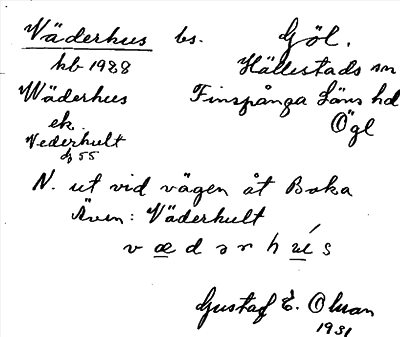 Väderhus bs. Göl.
hb 1988 Hällestads sn
Wäderhus Finspånga läns hd
ek. Ögl
Vederhult
dg 55
N. ut vid vägen åt Boka
Även: Väderhult
v æ d ə r h ú s
Gustaf E. Olson
1931